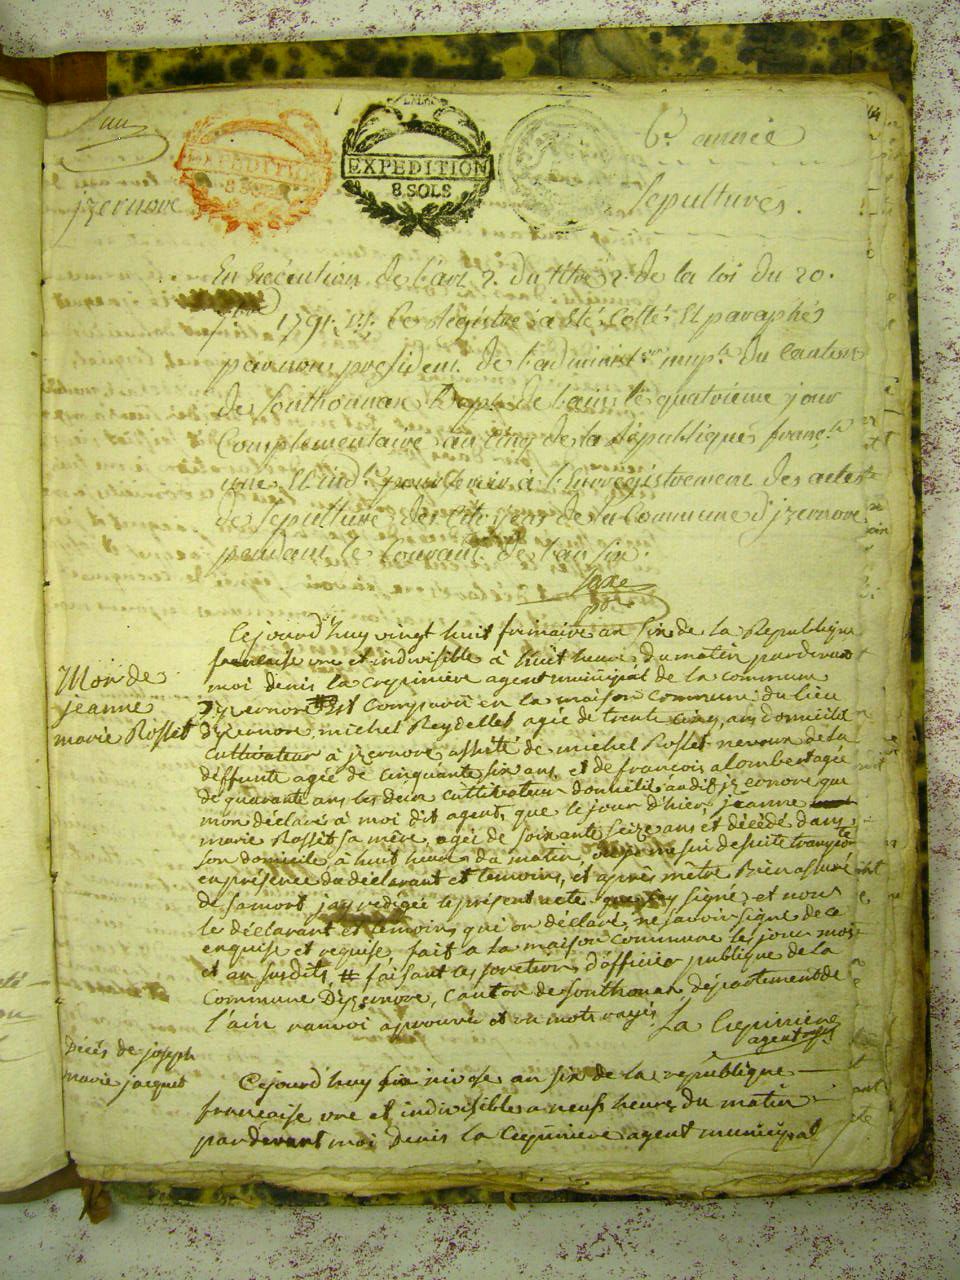 un
EXPEDITION
8 SOLS
EXPEDITION
8 SOLS
6e année
jzernore
Sepultures.
En Execution de l'art 2. du titre 2. de la loi du 20.
7bre 1791. le Registre a Eté Cotté Et paraphés
par nous president de l'administ.on mup.le du Canton
de Sonthonnax Dept. de l'ain le quatrieme jour
Complementaire an Cinq de la Republique franç.e
une Et ind.le pour servir a l'Enregistrement des actes
de Sepulture des Citoyens de la Commune d'jzernore
pendant le Courant de l'an six.
Cejourd'huy vingt huit frimaire an six de la Republique
francaise une et indivisible à huit heure du matin pardevant
moi denis la crepinière agent municipal de la commune
Mor de
jeanne
marie Rosset
Dyzernore # Est Comparu en la maison commune du lieu
dyzernore, michel Reydellet agée de trente cinq ans domicilié
cultivateur à jzernore assisté de michel Rosset neveux de la
deffunte agée de cinquante six ans, et de françois alombert agée
de quarante ans les deux cultivateur domicilié audit jzernore qui
mon déclaré a moi dit agent, que le jour d'hier, jeanne
marie Rosset sa mère, agée de soixante seize ans et décédé dans
son domicile à huit heure du matin, je me sui desuite transporté
en présence du déclarant et temoins, et après m'être Bien assuré
de sa mort jay redigée le présent acte que jay signé, et nous
le déclarant et temoins qui on déclaré ne savoir signé de ce
enquise et requise, fait a la maison commune les jour mois
et an susdits, # faisant les fonctions d'officier publique de la
Commune Dizernore, Canton de sonthonax département de
l'ain ranvoi aprouvé et un mot rayé. La Crepinière
agent mpl
Décés de joseph
marie jacquet
Cejourd'huy six nivose an six de la republique
francaise une et indivisible a neufs heures du matin
pardevant moi Denis la Crepiniere agent municipal